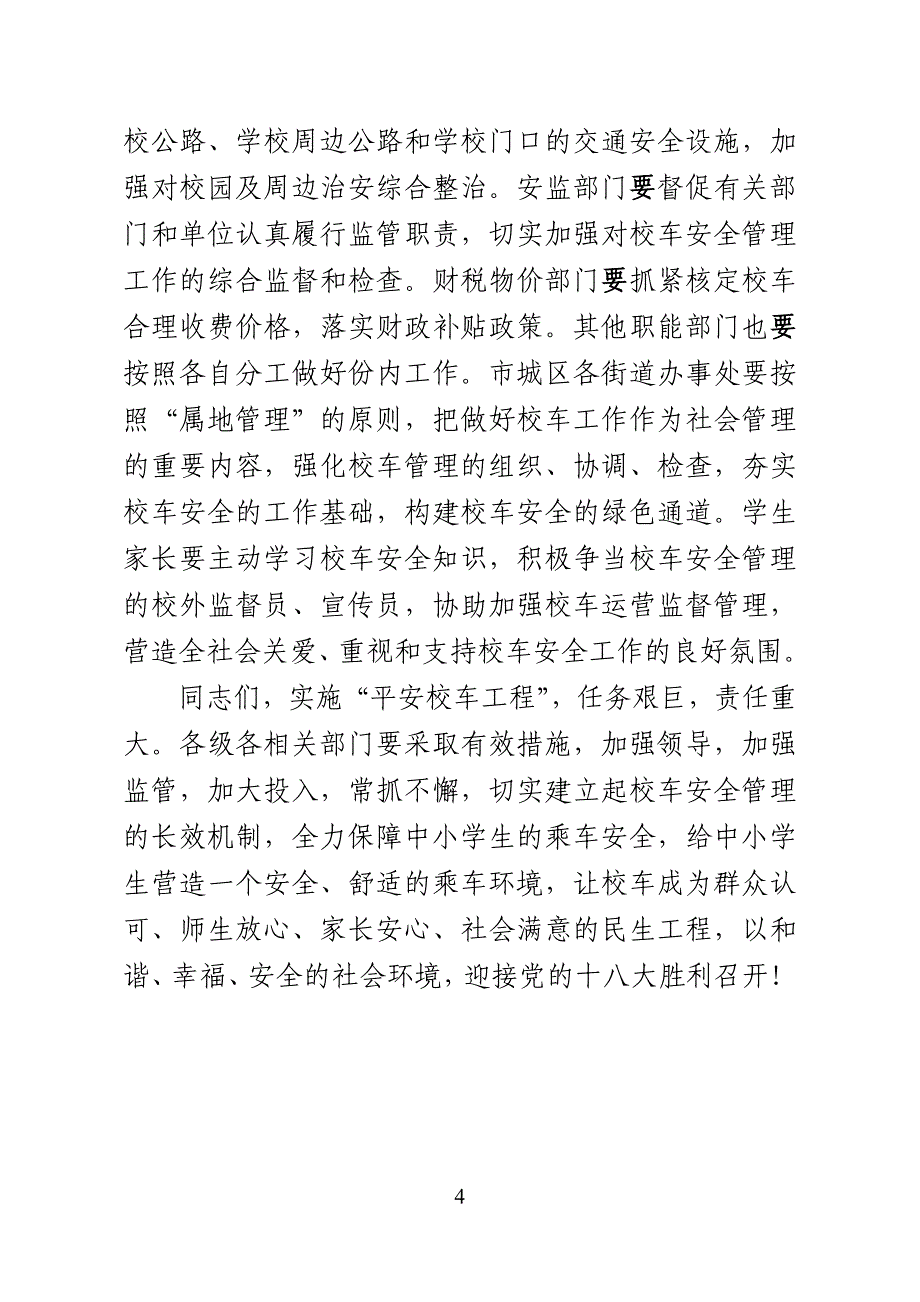 校公路、学校周边公路和学校门口的交通安全设施，加
强对校园及周边治安综合整治。安监部门要督促有关部
门和单位认真履行监管职责，切实加强对校车安全管理
工作的综合监督和检查。财税物价部门要抓紧核定校车
合理收费价格，落实财政补贴政策。其他职能部门也要
按照各自分工做好份内工作。市城区各街道办事处要按
照“属地管理”的原则，把做好校车工作作为社会管理
的重要内容，强化校车管理的组织、协调、检查，夯实
校车安全的工作基础，构建校车安全的绿色通道。学生
家长要主动学习校车安全知识，积极争当校车安全管理
的校外监督员、宣传员，协助加强校车运营监督管理，
营造全社会关爱、重视和支持校车安全工作的良好氛围。
同志们，实施“平安校车工程”，任务艰巨，责任重
大。各级各相关部门要采取有效措施，加强领导，加强
监管，加大投入，常抓不懈，切实建立起校车安全管理
的长效机制，全力保障中小学生的乘车安全，给中小学
生营造一个安全、舒适的乘车环境，让校车成为群众认
可、师生放心、家长安心、社会满意的民生工程，以和
谐、幸福、安全的社会环境，迎接党的十八大胜利召开！
4